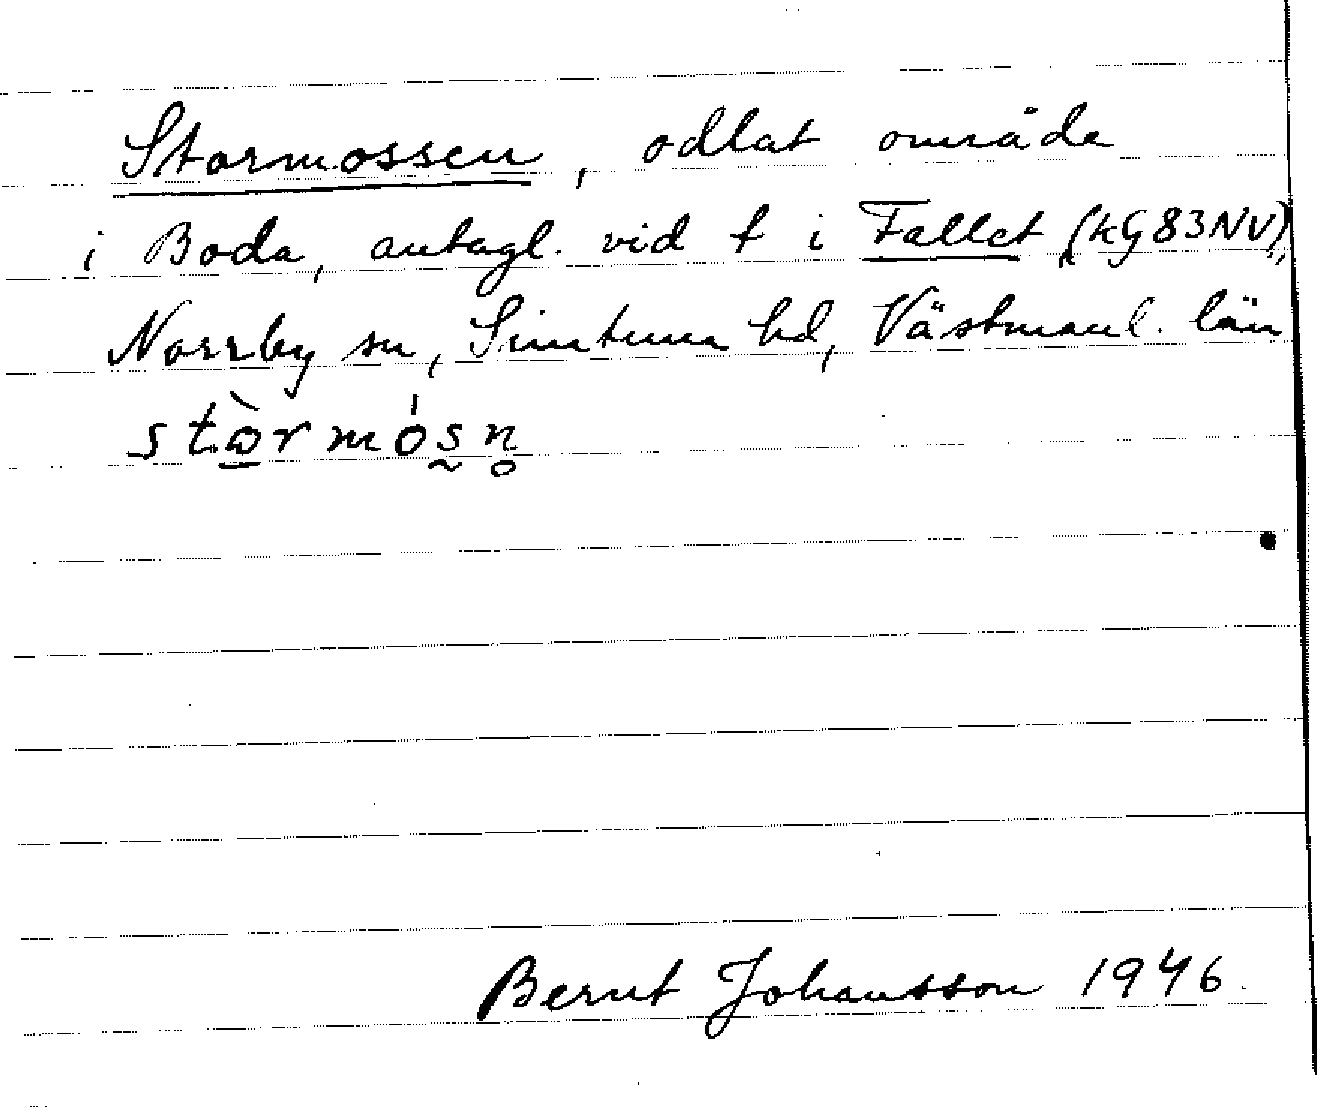 Stormossen, odlat område
i Boda, antagl. vid t i Fallet (kG83NV),
Norrby sn, Simtuna hd, Västmanl. län
stò̱rmósn̥
Bernt Johansson 1946